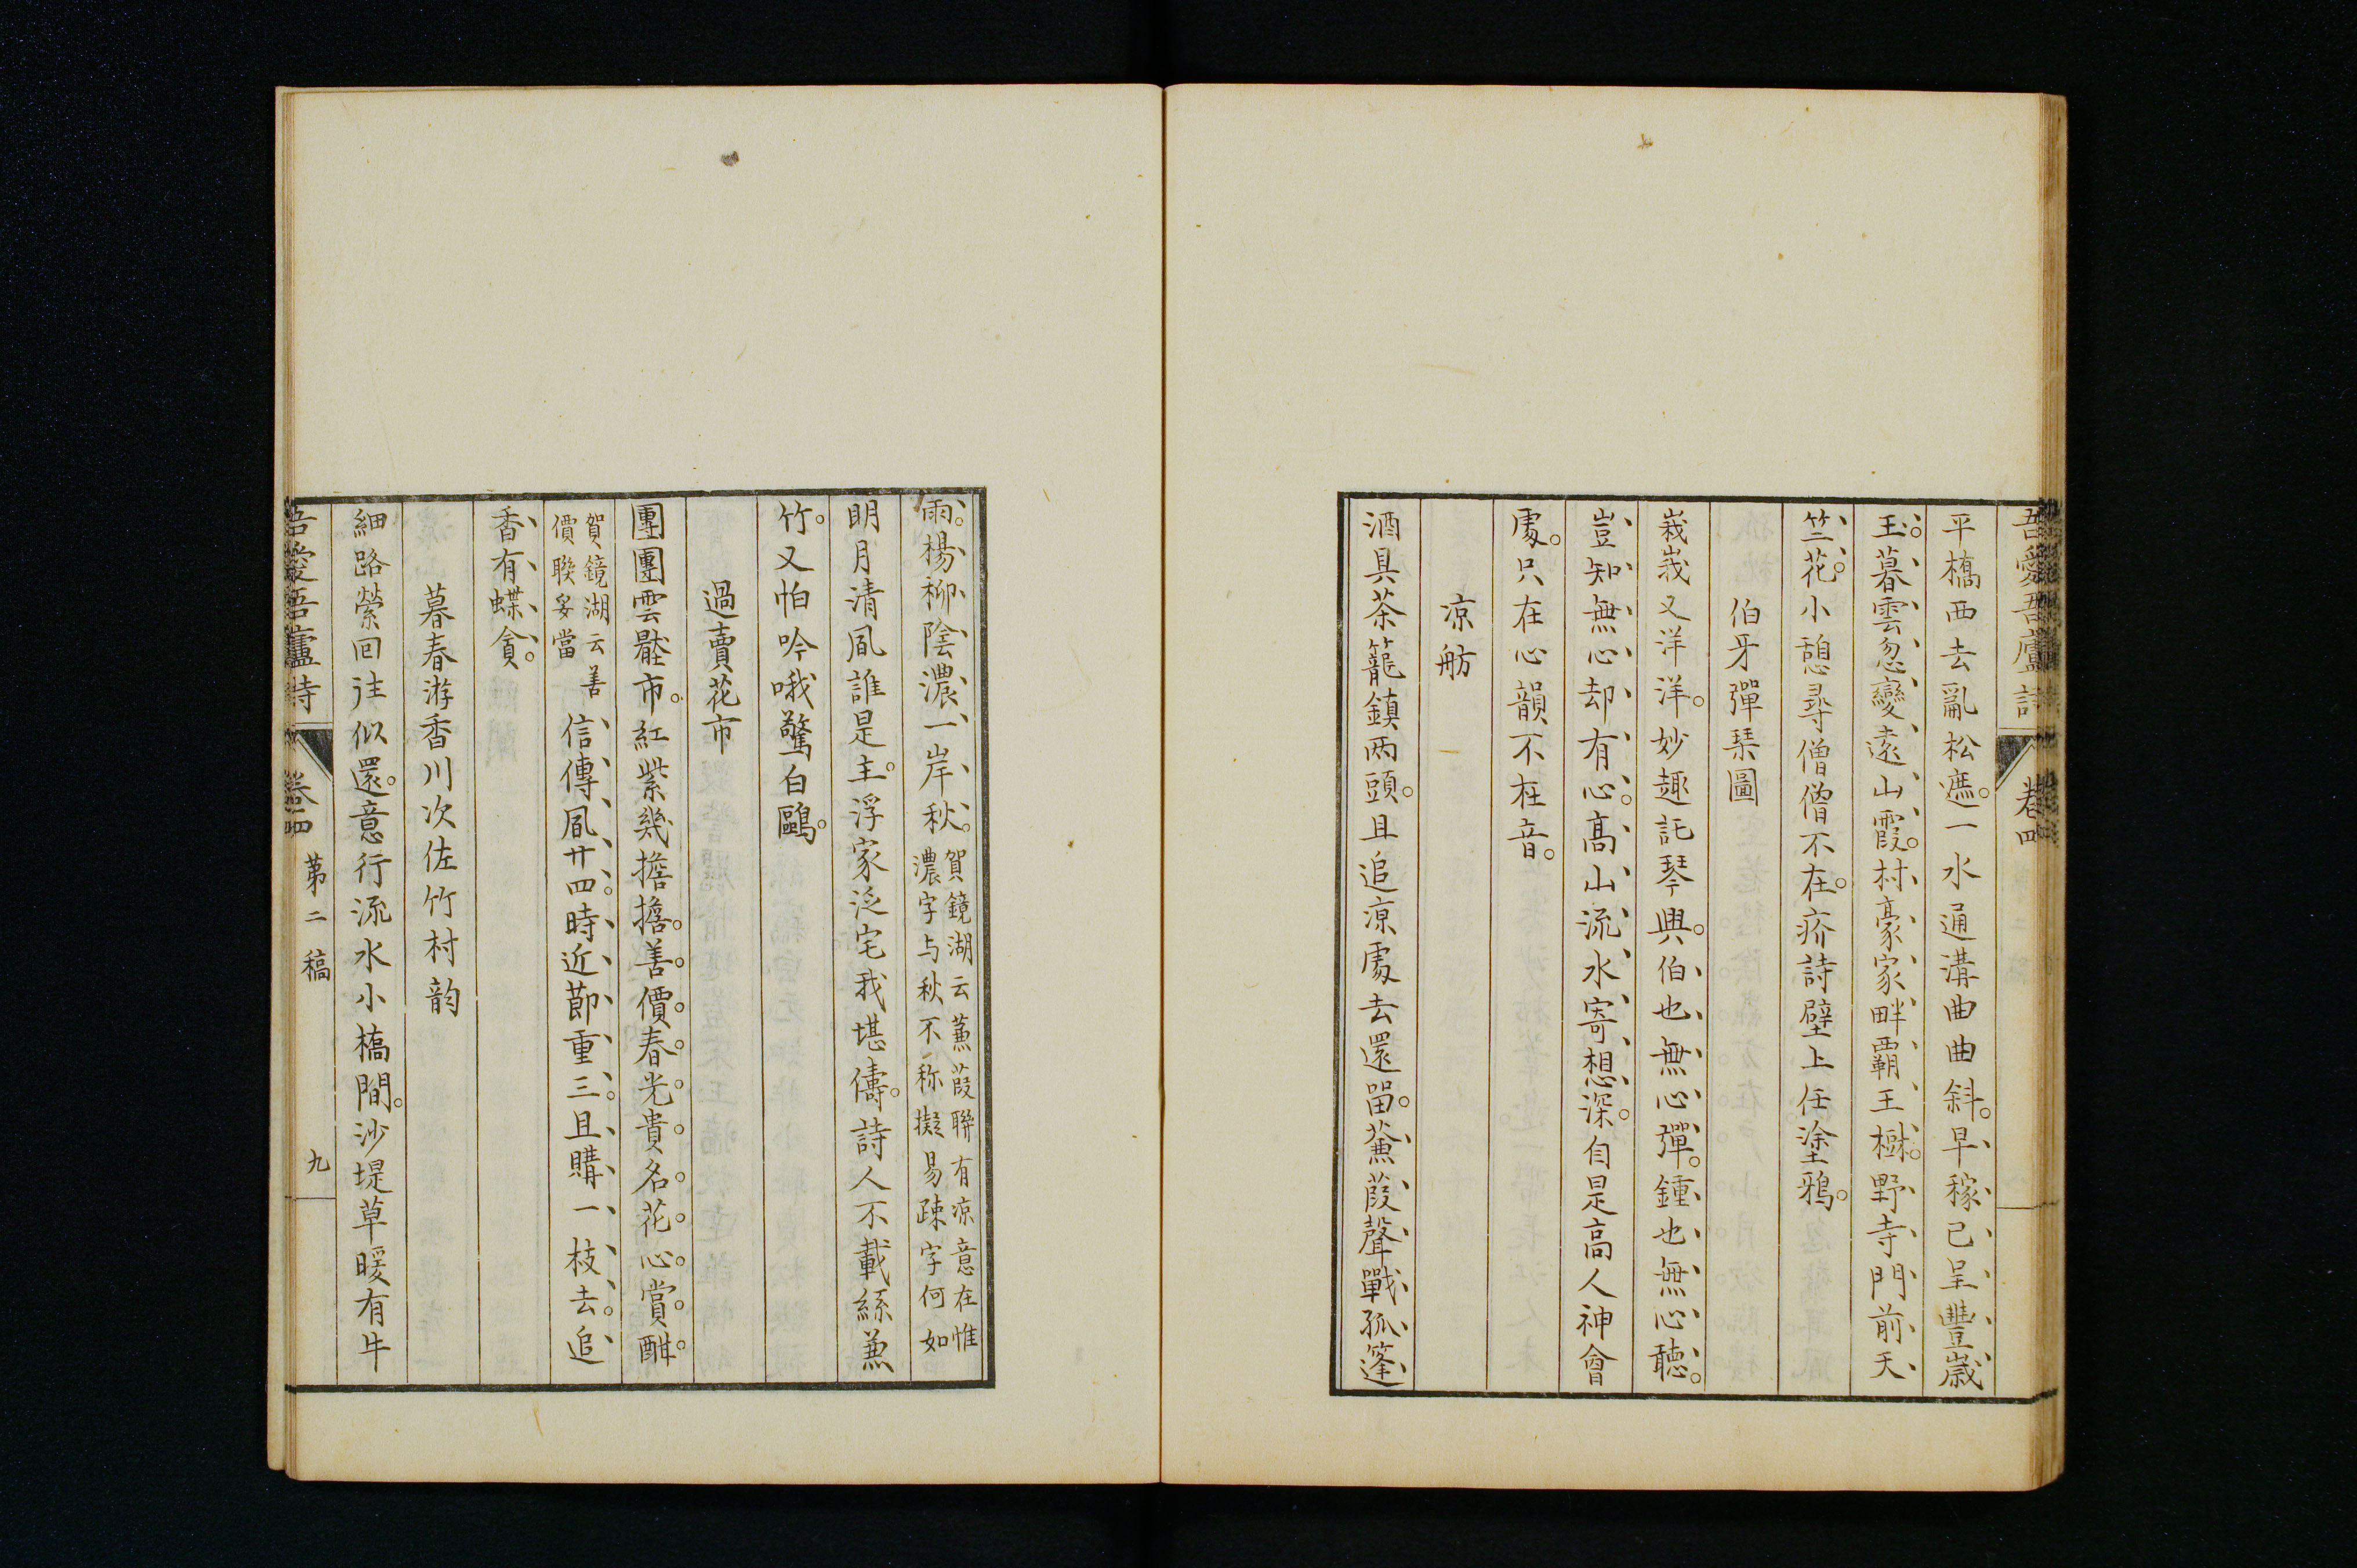 吾愛吾廬詩 卷四
平橋西去亂松遮。一水通溝曲曲斜。早稼已呈豐歲
玉。暮雲忽變遠山霞。村豪家畔霸王樹。野寺門前天
竺花。小憩尋僧僧不在。疥詩壁上任塗鴉。
伯牙彈琹圖
峩峩又洋洋。妙趣託琴興。伯也無心彈。鍾也無心聽。
豈知無心却有心。高山流水寄想深。自是高人神會
處。只在心韻不在音。
凉舫
酒具茶籠鎮两頭。且追凉處去還畱。蒹葭聲戰孤篷
雨。楊柳陰濃一岸秋。賀鏡湖云蒹葭聯有凉意在惟
濃字与秋不称擬易疎字何如
明月清風誰是主。浮家泛宅我堪儔。詩人不載絲兼
竹。又怕吟哦驚白鷗。
過賣花市
團團雲髻市。紅紫幾擔擔。善價春光貴名花心賞酣。
賀鏡湖云善
價聯妥當
信傳風廿四。時近莭重三。且購一枝去。追
香有蝶貪。
暮春游香川次佐竹村韵
細路縈回往似還。意行流水小橋間。沙堤草暖有牛
吾愛吾廬詩 卷四 苐二稿 九